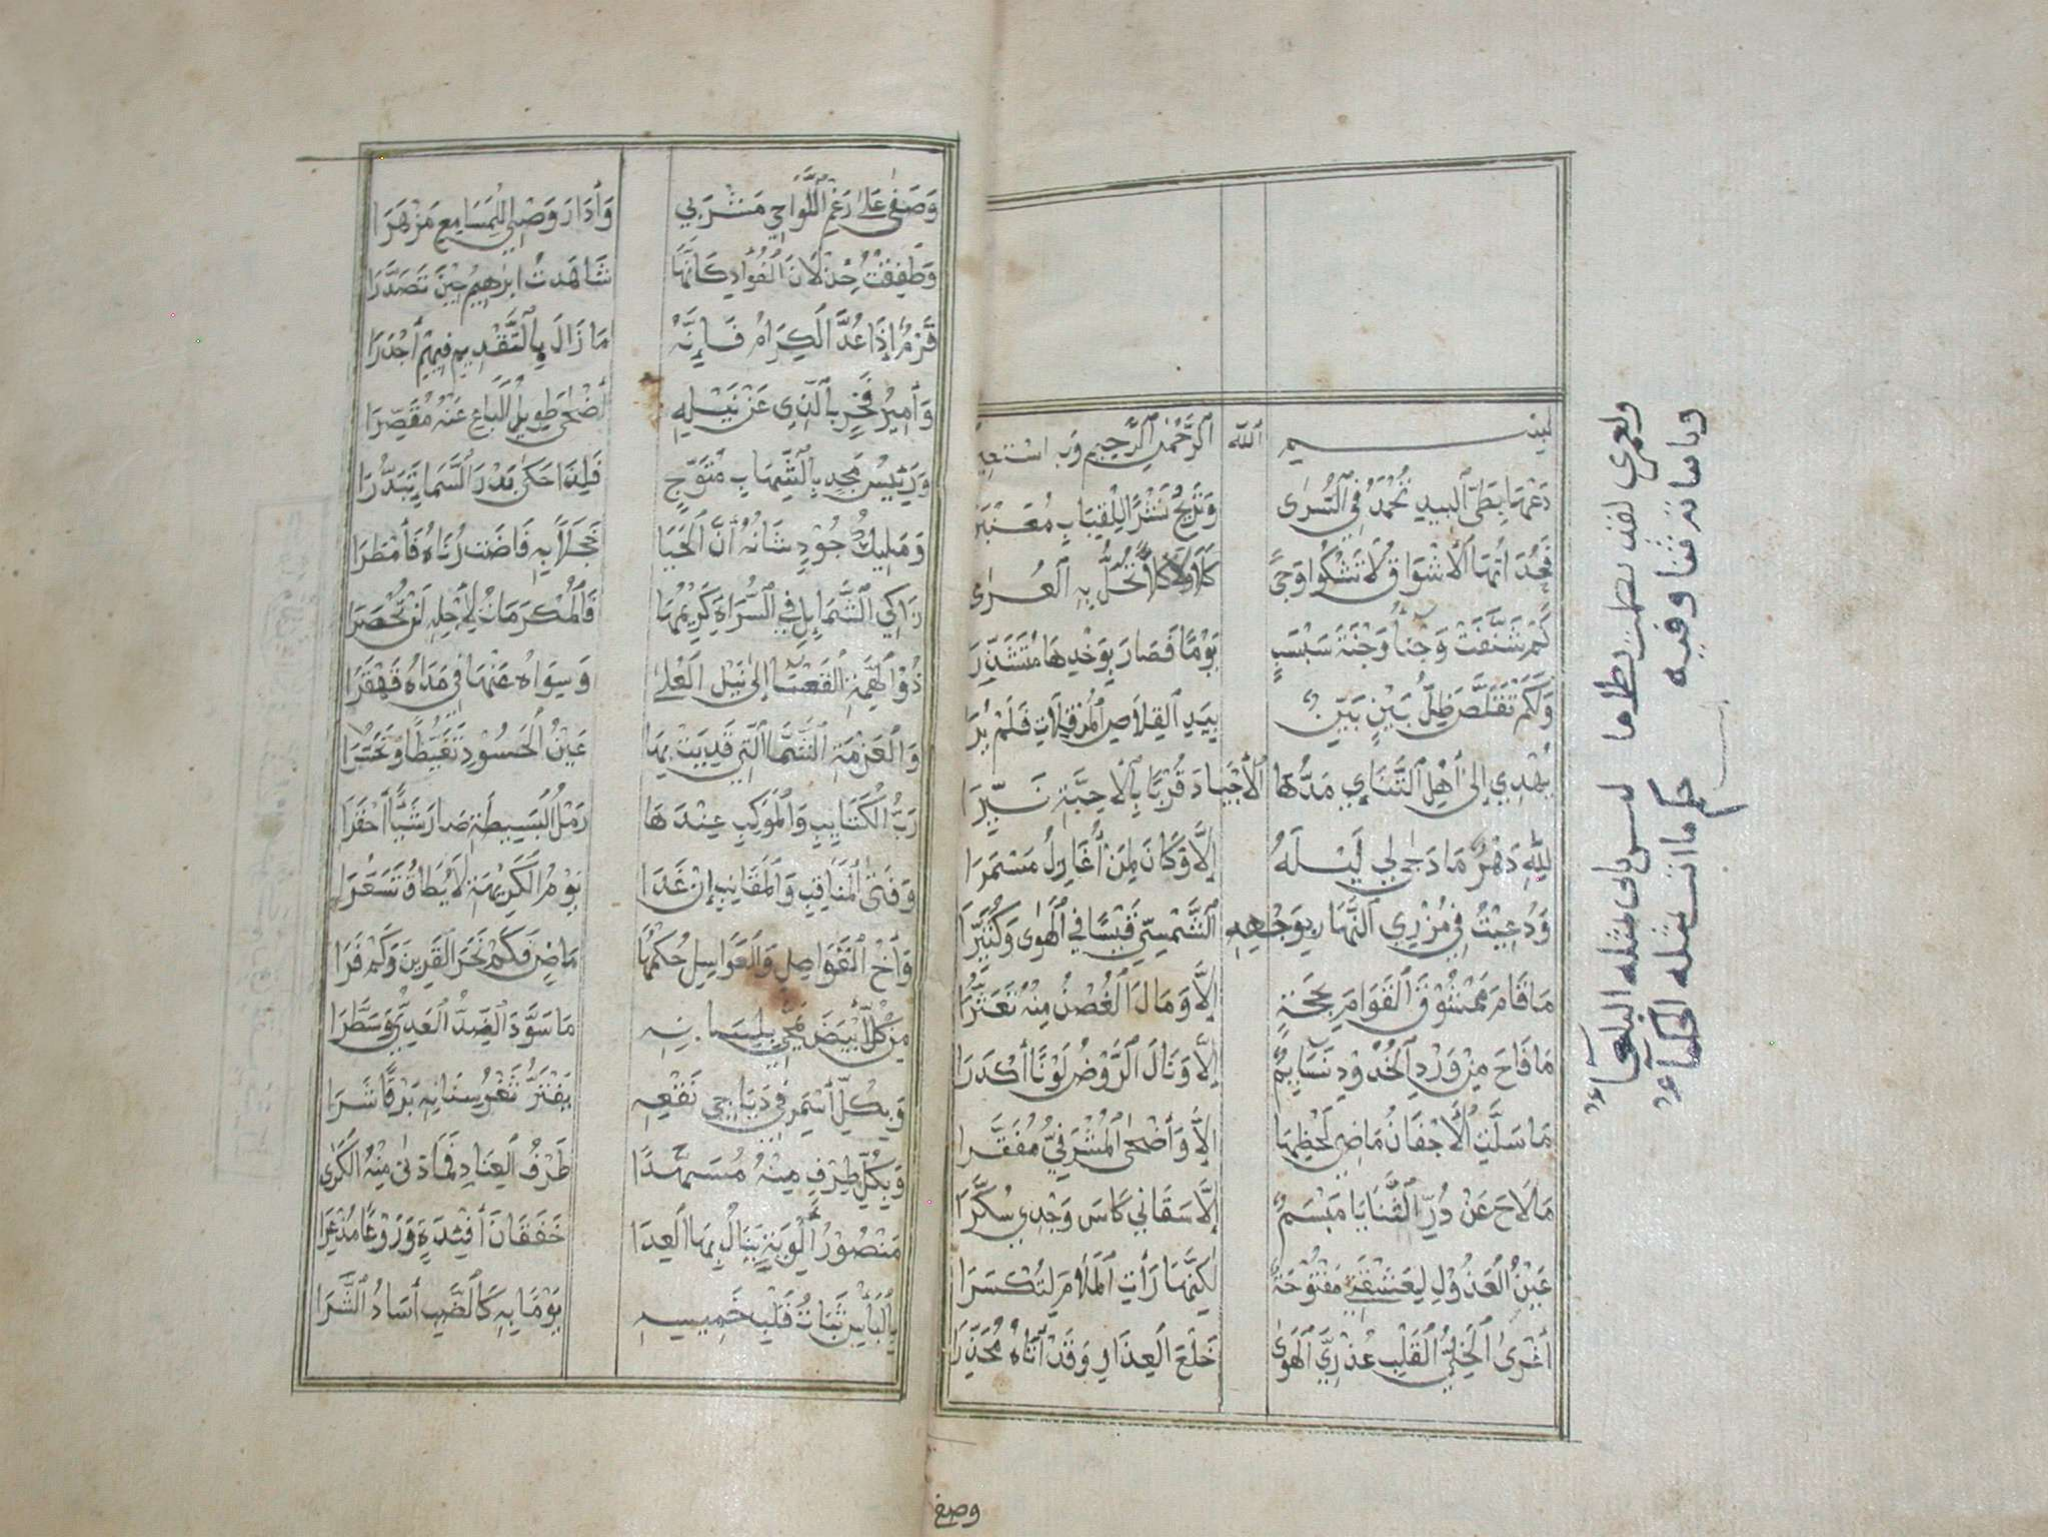 بسم الله الرحمن الرحيم وبه استعين
دَعْهَا بِطَيِّ البيدِ تُحْمَدُ فِي السُّرَى وَتُرِيحُ نَشْرًا لِلْقِبَابِ مُعَنْبَرَا
فَحُدَاتُهَا الأَشْوَاقُ لَا تَشْكُو وَجًى كَلَّا وَلَا كَلًّا تَحُلُّ بِهِ العُرَى
كَمْ شَنَّفَتْ وَجْنًا وَجْنَةَ سَبْسَبٍ يَوْمًا فَصَارَ بِوَخْدِهَا
وَلَكَمْ تَقَلَّصَ ظِلُّ بَيْنٍ بَيِّنٍ بِيَدِ القِلَاصِ المُرْقِلَاتِ فَلَمْ يُرَا
يُهْدِي إِلَى أَهْلِ التَّنَائِي مَدُّهَا الأَجْيَادَ قُرْبًا بِالأَحِبَّةِ نَيِّرَا
لِلَّهِ دَهْرٌ مَا دَجَى لِي لَيْلَهُ إِلَّا وَكَانَ لِمَنْ أُغَازِلُ مُسْمِرَا
وَدُعِيتُ فِي مُزْرِي النَّهَارِ بِوَجْهِهِ الشَّمْسِيِّ قَيْسًا فِي الهَوَى وَكُثَيِّرَا
مَا قَامَ مَمْشُوقَ القَوَامِ بِحَجَّةٍ إِلَّا وَمَالَ الغُصْنُ مِنْهُ تَعَثُّرَا
مَا فَاحَ مِنْ وَرْدِ الخُدُودِ نَسَايِمٌ إِلَّا وَنَالَ الرَّوْضُ لَوْنًا أَكْدَرَا
مَا سَلَّتِ الأَجْفَانُ مَاضِي لَحْظِهَا إِلَّا وَأَضْحَى المُشْرَفِيُّ مُفَقَّرَا
مَا لَاحَ عَنْ دُرِّ الثَّنَايَا مَبْسَمٌ إِلَّا سَقَانِي كَاسَ وَجْدِي سُكَّرَا
عَيْنُ العَذُولِ لِعَشْقَتِي مَفْتُوحَةٌ لَكِنَّهَا رَأَتِ المَلَامَ لِتُكْسَرَا
أَغْرَى الخَلِيَّ القَلْبِ عُذْرِيُّ الهَوَى خَلْعَ العِذَارِ وَقَدْ أَتَاهُ مُحَذِّرَا
وصفى
ولعمري لقد نظمت نظاما ليس ياتي بمثله البلغاء
وباياته ثنا وفيه حكم ما اتت بمثله الحكماء
وَصَفَى عَلَى رَغْمِ اللَّوَاحِي مَشْرَبِي وَأَدَارَ وَصْلِي لِلْمَسَامِعِ مَزْهَرَا
وَطَفِقْتُ جَذْلَانَ الفُؤَادِ كَأَنَّهَا شَاهَدتُ ابرهِيمَ حِينَ تَصَدَّرَا
قَرْمٌ إِذَا عُدَّ الكِرَامُ فَإِنَّهُ مَا زَالَ بِالتَّقْدِيمِ فِيهِمْ أَجْدَرَا
وَأَمِيرُ فَخْرٍ بِالَّذِي عَنْ نَيْلِهِ أَضْحَى طَوِيلُ البَاعِ عَنْهُ مُقَصِّرَا
وَرَئِيسُ مَجْدٍ بِالشِّهَابِ مُتَوَّجٌ فَلِذَا حَكَى بَدْرَ السَّمَا يَتَبَدَّرَا
وَمَلِيكُ جُودٍ شَانُهُ أَنَّ الحَيَا خَجَلًا بِهِ فَاضَتْ رُبَاهُ فَأَمْطَرَا
زَاكِي الشَّمَايِلِ فِي السُّرَاةِ كَرِيمُهَا فَالمَكْرُمَاتُ لِأَجْلِهِ لَنْ تُحْصَرَا
ذُو الهِمَّةِ القَعْسَا إِلَى نَيْلِ العُلَى وَسِوَاهُ عَنْهَا فِي مَدَاهُ قَهْقَرَا
وَالعَزْمَةِ الشَّمَّا الَّتِي قَذِيَتْ بِهَا عَيْنُ الحَسُودِ تَغَيُّظًا وَتَحَسُّرَا
رَبُّ الكَتَايِبِ وَالمَوَاكِبِ عِنْدَهَا رَمْلُ البَسِيطَةِ صَارَ شَيْئًا أَحْقَرَا
وَفَتَى المَنَاقِبِ وَالمَقَانِبِ إِنْ غَدَا يَوْمُ الكَرِيهَةِ لَا يُطَاقُ تَسَعُّرَا
وَأَخُ الفَوَاصِلِ وَالعَوَاسِلِ حُكْمُهَا مَاضٍ فَكَمْ نَحَرَ القَرِينَ وَكَمْ فَرَا
مِنْ كُلِّ أَبْيَضَ يَمَّحِي بِلِسَانِهِ مَا سَوَّدَ الضِّدُّ العَدِيُّ وَسَطَّرَا
وَبِكُلِّ أَسْمَرَ فِي دَيَاجِي نَقْعِهِ يَفْتَرُّ ثَغْرُ سِنَانِهِ بَرْقًا شَرَا
وَبِكُلِّ طِرْفٍ مِنْهُ مُسَهَّدًا طَرْفُ العِنَادِ فَمَا دَنَى مِنْهُ الكَرَى
مَنْصُورُ أَلْوِيَةٍ يَنَالُ بِهَا العِدَا خَفَقَانَ أَفْئِدَةٍ وَرَوْعًا مُذْعِرَا
بِالبَأْسِ ثَبَاتُ قَلْبِ خَمِيسِهِ يَوْمًا بِهِ كَالضَّبِّ آسَادُ الشَّرَا